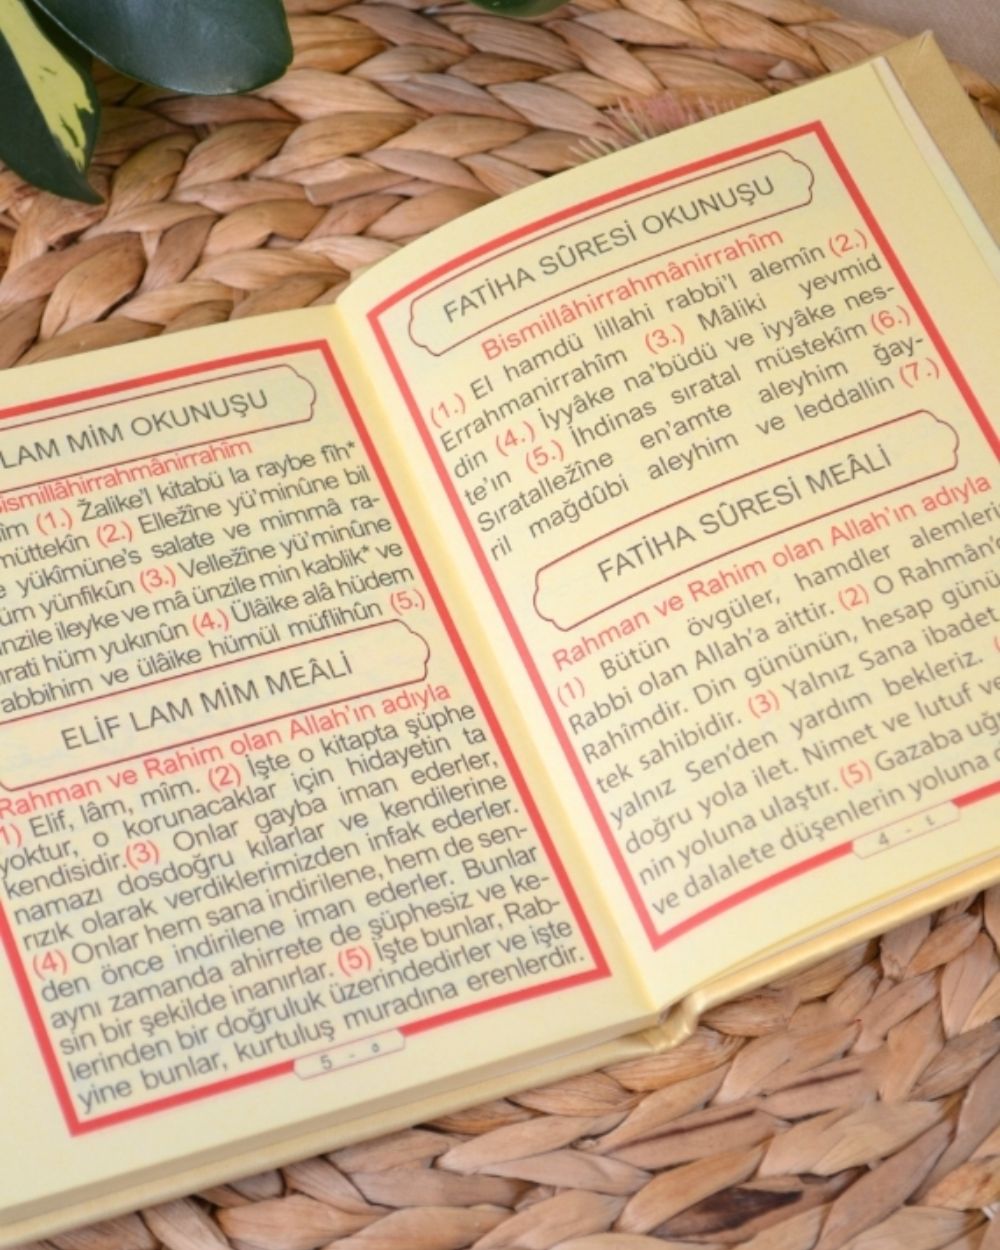 FATİHA SÛRESİ OKUNUŞU
Bismillâhirrahmânirrahîm
(1.) El hamdü lillahi rabbi'l alemîn (2.)
Errahmanirrahîm (3.) Mâliki yevmid
din (4.) İyyâke na'büdü ve iyyâke nes-
te'ın (5.) İhdinas sıratal müstekîm (6.)
Sıratalležîne en'amte aleyhim ğay-
ril mağdûbi aleyhim ve leddallin (7.)
FATİHA SÛRESİ MEÂLİ
Rahman ve Rahim olan Allah'ın adıyla
(1) Bütün övgüler, hamdler alemleri
Rabbi olan Allah'a aittir. (2) O Rahmân'
Rahîmdir. Din gününün, hesap günü
tek sahibidir. (3) Yalnız Sana ibadet
yalnız Sen'den yardım bekleriz.
doğru yola ilet. Nimet ve lutuf ve
nin yoluna ulaştır. (5) Gazaba uğ
ve dalalete düşenlerin yoluna
4 - ٤
LAM MİM OKUNUŞU
ismillâhirrahmânirrahîm
îm (1.) Žalike'l kitabü la raybe fîh*
müttekîn (2.) Elležîne yü'minûne bil
yükîmüne's salate ve mimmâ ra-
üm yünfikûn (3.) Velležîne yü'minûne
nzile ileyke ve mâ ünzile min kablik* ve
irati hüm yukınûn (4.) Ülâike alâ hüdem
abbihim ve ülâike hümül müflihûn (5.)
ELİF LAM MİM MEÂLİ
Rahman ve Rahim olan Allah'ın adıyla
1) Elif, lâm, mîm. (2) İşte o kitapta şüphe
yoktur, o korunacaklar için hidayetin ta
kendisidir.(3) Onlar gayba iman ederler,
namazı dosdoğru kılarlar ve kendilerine
rızık olarak verdiklerimizden infak ederler.
(4) Onlar hem sana indirilene, hem de sen-
den önce indirilene iman ederler. Bunlar
aynı zamanda ahirrete de şüphesiz ve ke-
sin bir şekilde inanırlar. (5) İşte bunlar, Rab-
lerinden bir doğruluk üzerindedirler ve işte
yine bunlar, kurtuluş muradına erenlerdir.
5 - ٥